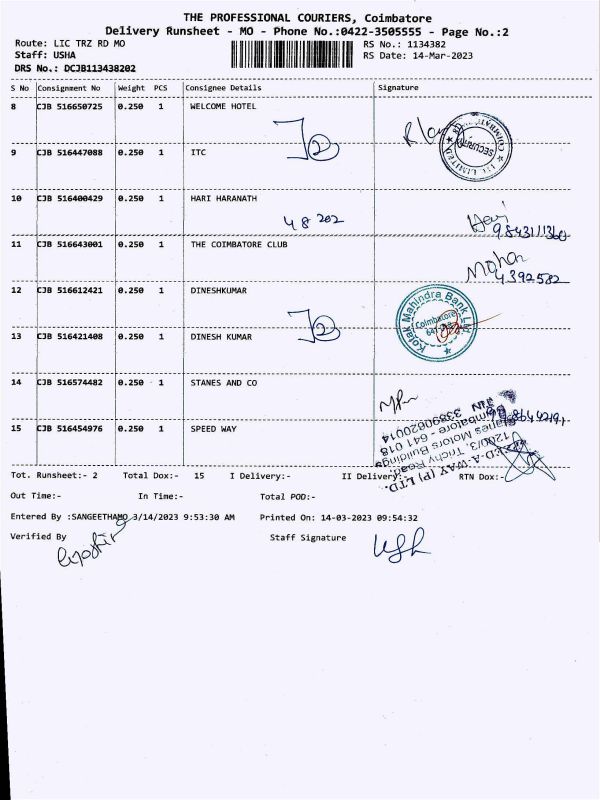 THE PROFESSIONAL COURIERS, Coimbatore
Delivery Runsheet - MO - Phone No.:0422-3505555 - Page No.:2
Route: LIC TRZ RD MO RS No.: 1134382
Staff: USHA RS Date: 14-Mar-2023
DRS No.: DCJB113438202
S No Consignment No Weight PCS Consignee Details Signature
8 CJB 516650725 0.250 1 WELCOME HOTEL
9 CJB 516447088 0.250 1 ITC
SECURITY
10 CJB 516400429 0.250 1 HARI HARANATH
48 202 Hari
9843111360
11 CJB 516643001 0.250 1 THE COIMBATORE CLUB
Mohan
4392582
12 CJB 516612421 0.250 1 DINESHKUMAR
Kotak Mahindra Bank Ltd.
Coimbatore
13 CJB 516421408 0.250 1 DINESH KUMAR
14 CJB 516574482 0.250 1 STANES AND CO
15 CJB 516454976 0.250 1 SPEED WAY
ED-A-WAY (P) LTD.
1200/3, Trichy Road,
Stanes Motors Buildings
Coimbatore - 641 018
Tot. Runsheet:- 2 Total Dox:- 15 I Delivery:- II Delivery:- RTN Dox:-
Out Time:- In Time:- Total POD:-
Entered By :SANGEETHAMO 3/14/2023 9:53:30 AM Printed On: 14-03-2023 09:54:32
Verified By Staff Signature